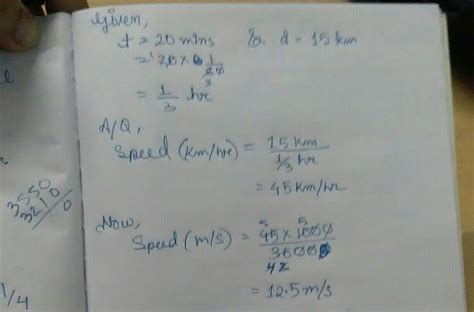 Given,
t = 20 mins & d = 15 km
= 20 × 1/60
= 1/3 hr
A/Q,
Speed (km/hr) = 15 km / 1/3 hr
= 45 km/hr
Now,
Speed (m/s) = 45 × 1000 / 3600
= 12.5 m/s
3550
3210
0
1/4